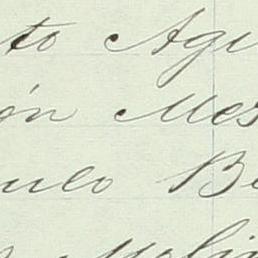 to Agu
ón Mes
ulo Be
Molin